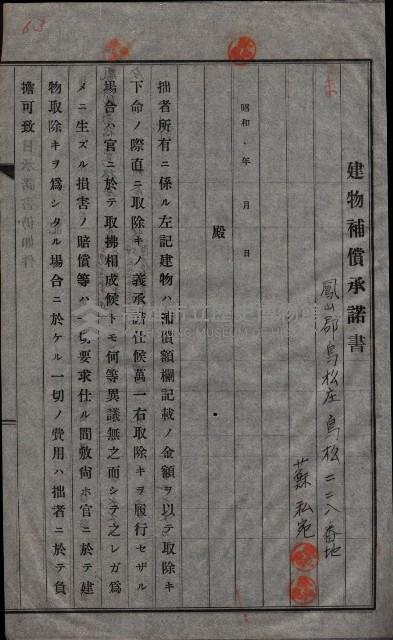 建物補償承諾書
鳳山郡鳥松庄鳥松二二八番地
蘇私宛
昭和 年 月 日
殿
拙者所有ニ係ル左記建物ハ補償額欄記載ノ金額ヲ以テ取除キ
下命ノ際直ニ取除キノ義承諾仕候萬一右取除キヲ履行セザル
場合ハ官ニ於テ取拂相成候トモ何等異議無之而シテ之レガ爲
メニ生ズル損害ノ賠償等ハ一切要求仕ル間敷尚ホ官ニ於テ建
物取除キヲ爲シタル場合ニ於ケル一切ノ費用ハ拙者ニ於テ負
擔可致
63